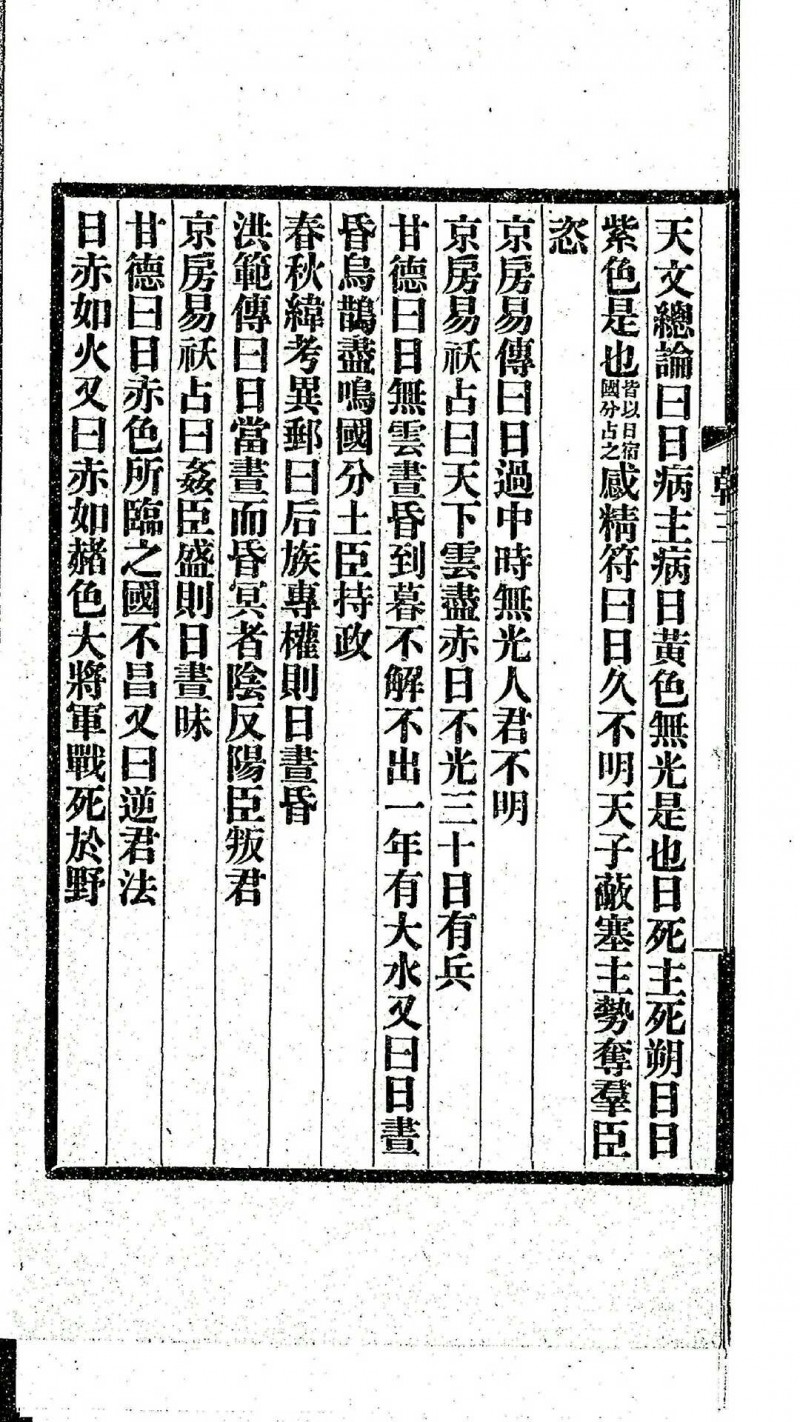 天文總論曰日病主病日黃色無光是也日死主死朔日日
紫色是也皆以日宿國分占之感精符曰日久不明天子蔽塞主勢奪羣臣
恣
京房易傳曰日過中時無光人君不明
京房易祅占曰天下雲盡赤日不光三十日有兵
甘德曰日無雲晝昏到暮不解不出一年有大水又曰日晝
昏烏鵲盡鳴國分土臣持政
春秋緯考異郵曰后族專權則日晝昏
洪範傳曰日當晝而昏冥者陰反陽臣叛君
京房易祅占曰姦臣盛則日晝昧
甘德曰日赤色所臨之國不昌又曰逆君法
日赤如火又曰赤如赭色大將軍戰死於野